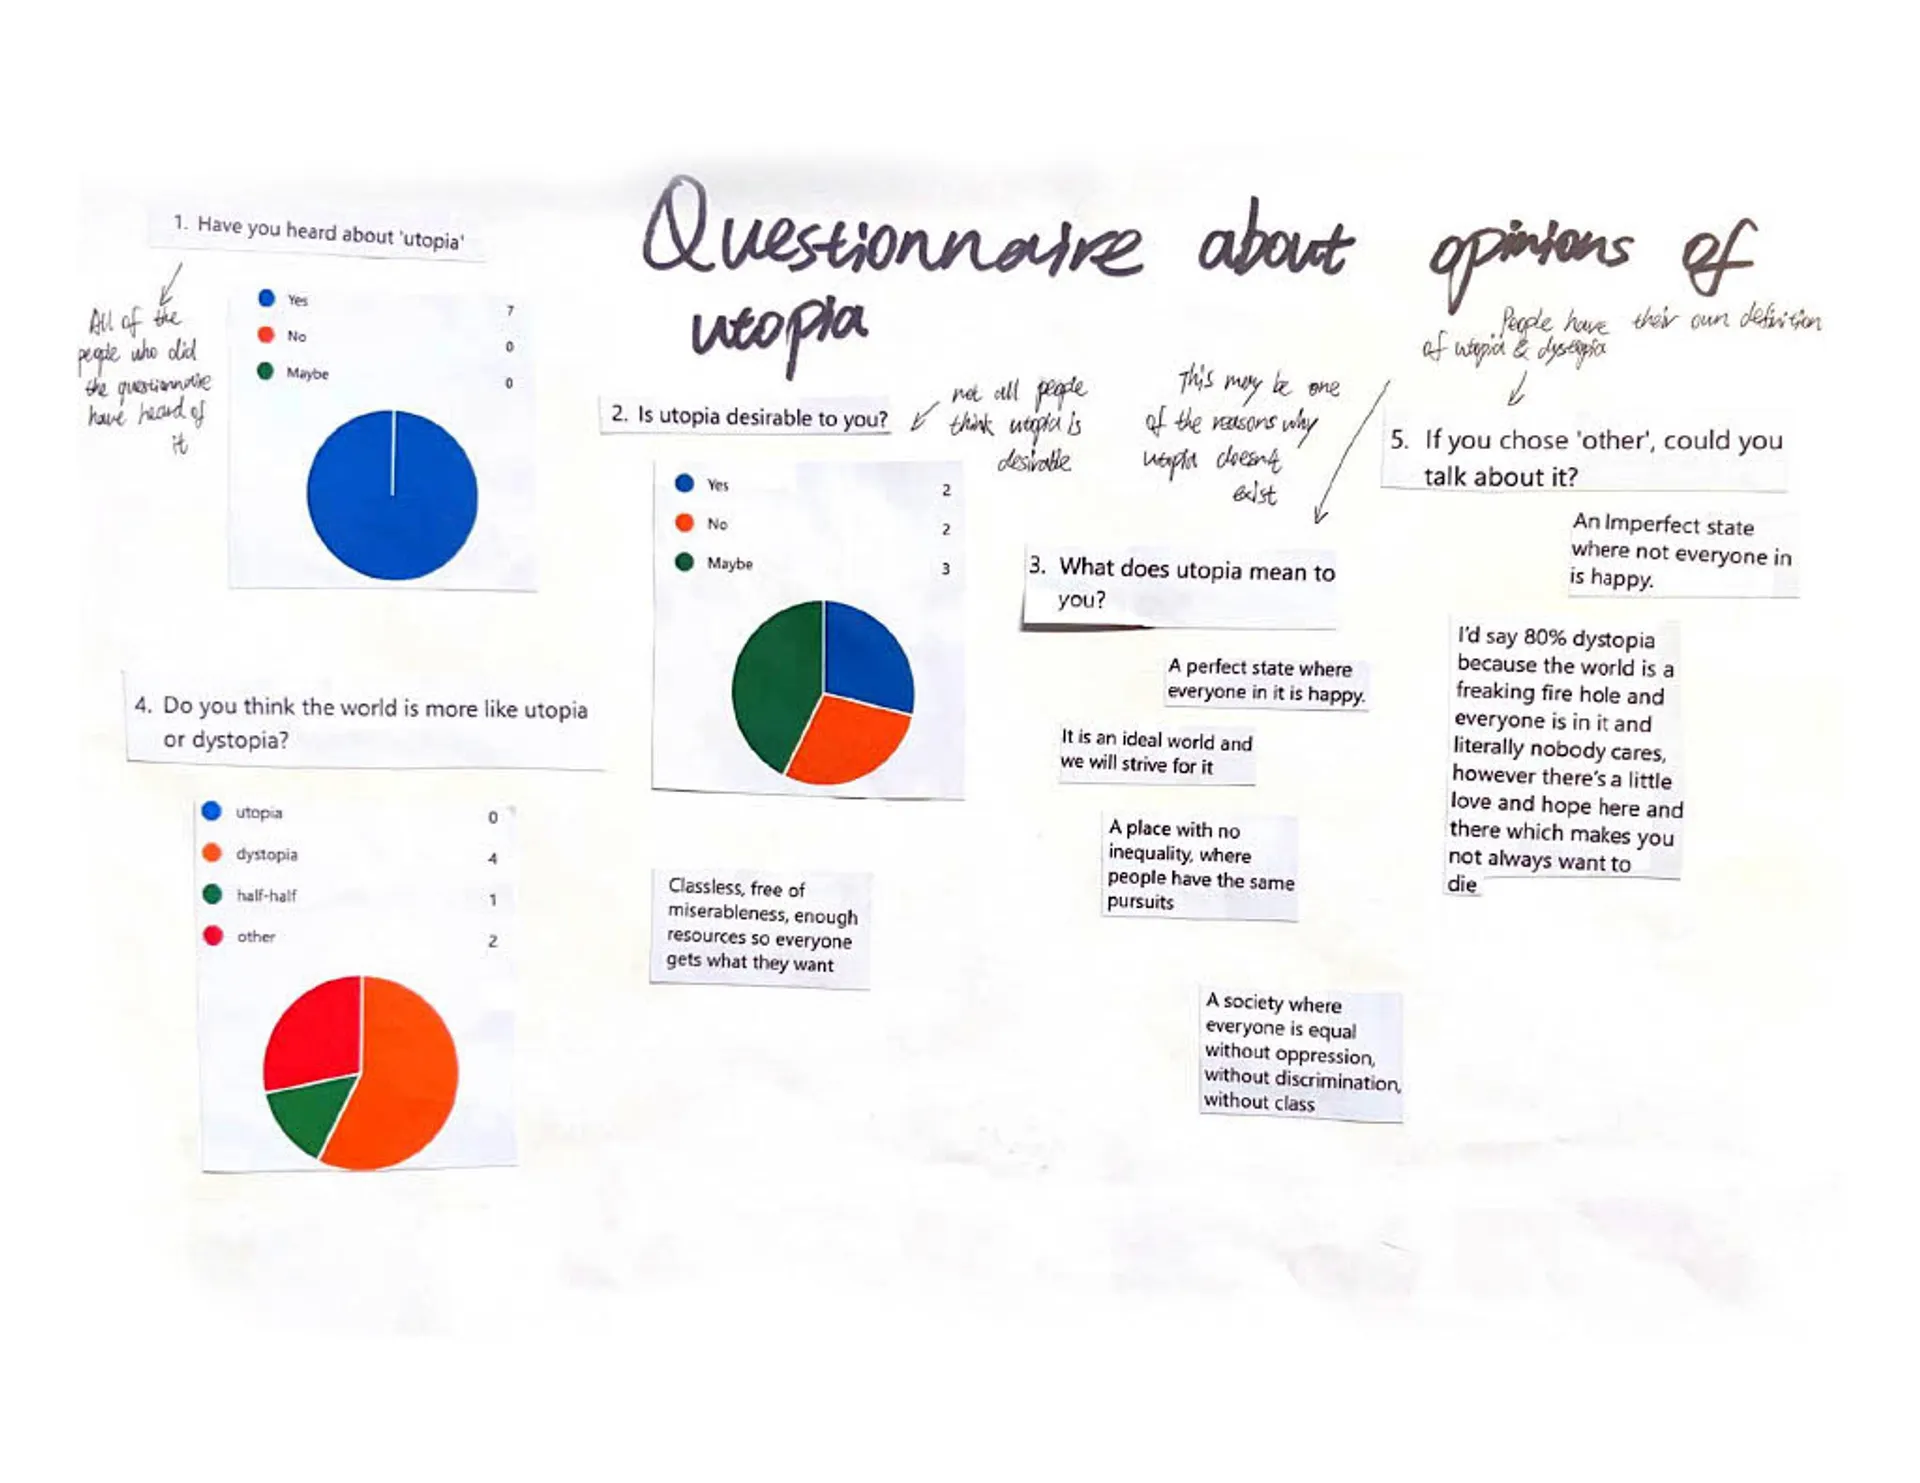 Questionnaire about opinions of
utopia
1. Have you heard about 'utopia'
All of the
people who did
the questionnaire
have heard of
it
Yes 7
No 0
Maybe 0
2. Is utopia desirable to you?
not all people
think utopia is
desirable
Yes 2
No 2
Maybe 3
This may be one
of the reasons why
utopia doesn't
exist
3. What does utopia mean to
you?
A perfect state where
everyone in it is happy.
It is an ideal world and
we will strive for it
A place with no
inequality, where
people have the same
pursuits
Classless, free of
miserableness, enough
resources so everyone
gets what they want
A society where
everyone is equal
without oppression,
without discrimination,
without class
4. Do you think the world is more like utopia
or dystopia?
utopia 0
dystopia 4
half-half 1
other 2
People have their own definition
of utopia & dystopia
5. If you chose 'other', could you
talk about it?
An Imperfect state
where not everyone in
is happy.
I'd say 80% dystopia
because the world is a
freaking fire hole and
everyone is in it and
literally nobody cares,
however there's a little
love and hope here and
there which makes you
not always want to
die